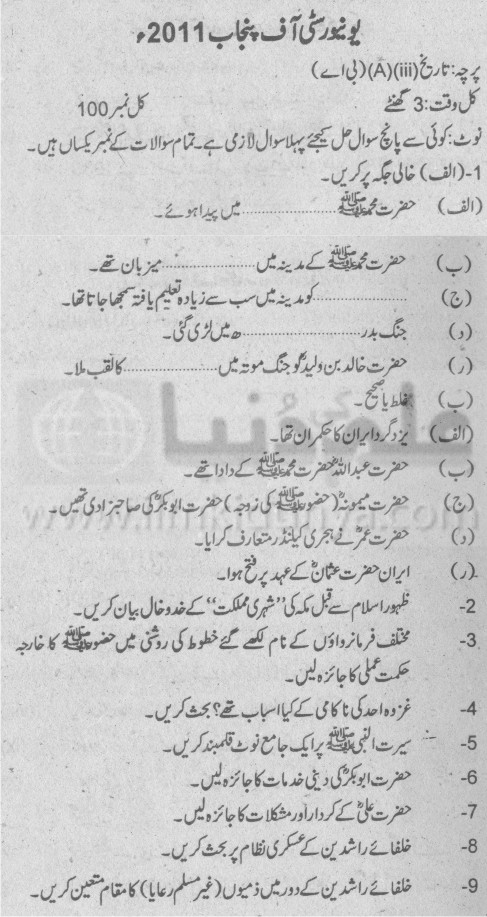 یونیورسٹی آف پنجاب 2011ء
پرچہ: تاریخ (iii)(A)(بی اے)
کل وقت: 3 گھنٹے کل نمبر 100
نوٹ: کوئی سے پانچ سوال حل کیجئے پہلا سوال لازمی ہے۔ تمام سوالات کے نمبر یکساں ہیں۔
1- (الف) خالی جگہ پر کریں۔
(الف) حضرت محمد ﷺ .................... میں پیدا ہوئے۔
(ب) حضرت محمد ﷺ کے مدینہ میں .................... میزبان تھے۔
(ج) .................... کو مدینہ میں سب سے زیادہ تعلیم یافتہ سمجھا جاتا تھا۔
(د) جنگ بدر .................... ھ میں لڑی گئی۔
(ر) حضرت خالد بن ولیدؓ کو جنگ موتہ میں .................... کا لقب ملا۔
(ب) غلط یا صحیح۔
(الف) یزدگرد ایران کا حکمران تھا۔
(ب) حضرت عبداللہؓ حضرت محمد ﷺ کے دادا تھے۔
(ج) حضرت میمونہؓ (حضور ﷺ کی زوجہ) حضرت ابوبکرؓ کی صاحبزادی تھیں۔
(د) حضرت عمرؓ نے ہجری کیلنڈر متعارف کرایا۔
(ر) ایران حضرت عثمانؓ کے عہد پر فتح ہوا۔
2- ظہور اسلام سے قبل مکہ کی "شہری مملکت" کے خدوخال بیان کریں۔
3- مختلف فرمانرواؤں کے نام لکھے گئے خطوط کی روشنی میں حضور ﷺ کا خارجہ
حکمت عملی کا جائزہ لیں۔
4- غزوہ احد کی ناکامی کے کیا اسباب تھے؟ بحث کریں۔
5- سیرت النبی ﷺ پر ایک جامع نوٹ قلمبند کریں۔
6- حضرت ابوبکرؓ کی دینی خدمات کا جائزہ لیں۔
7- حضرت علیؓ کے کردار اور مشکلات کا جائزہ لیں۔
8- خلفائے راشدین کے عسکری نظام پر بحث کریں۔
9- خلفائے راشدین کے دور میں ذمیوں (غیر مسلم رعایا) کا مقام متعین کریں۔